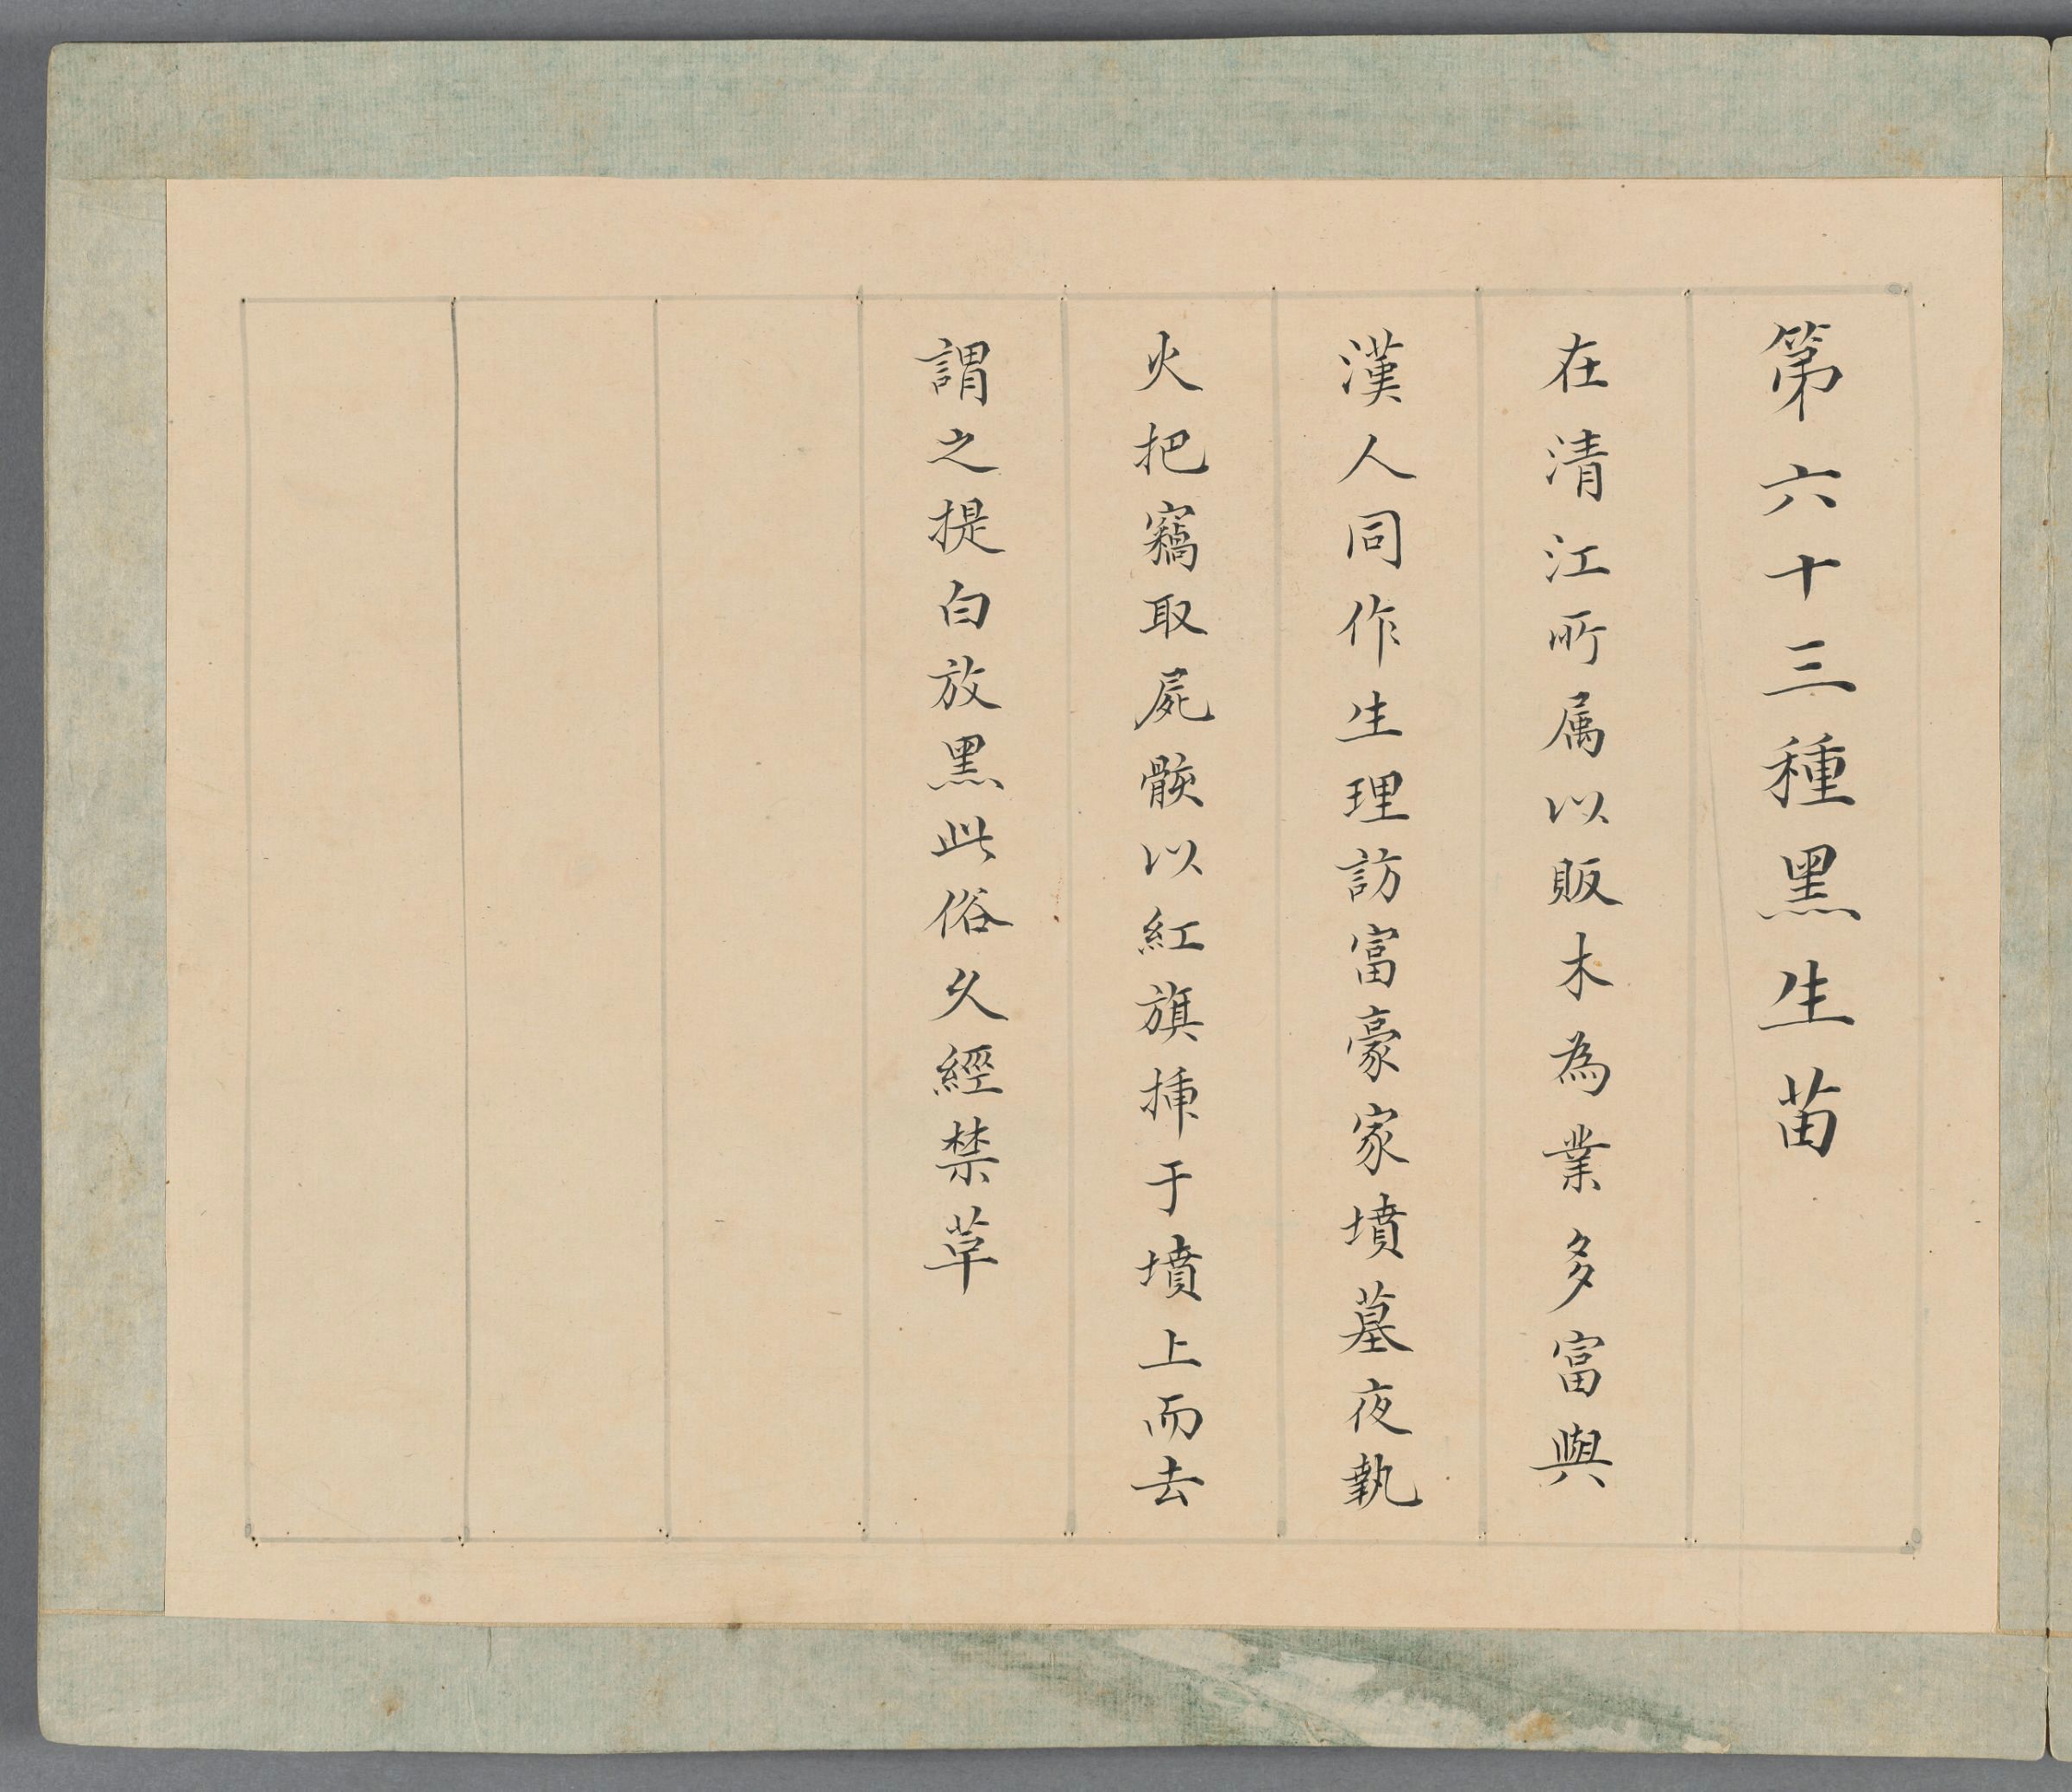 第六十三種黑生苗
在清江所属以販木為業多富與
漢人同作生理訪富豪家墳墓夜執
火把竊取屍骸以紅旗揷于墳上而去
謂之提白放黑此俗久經禁草